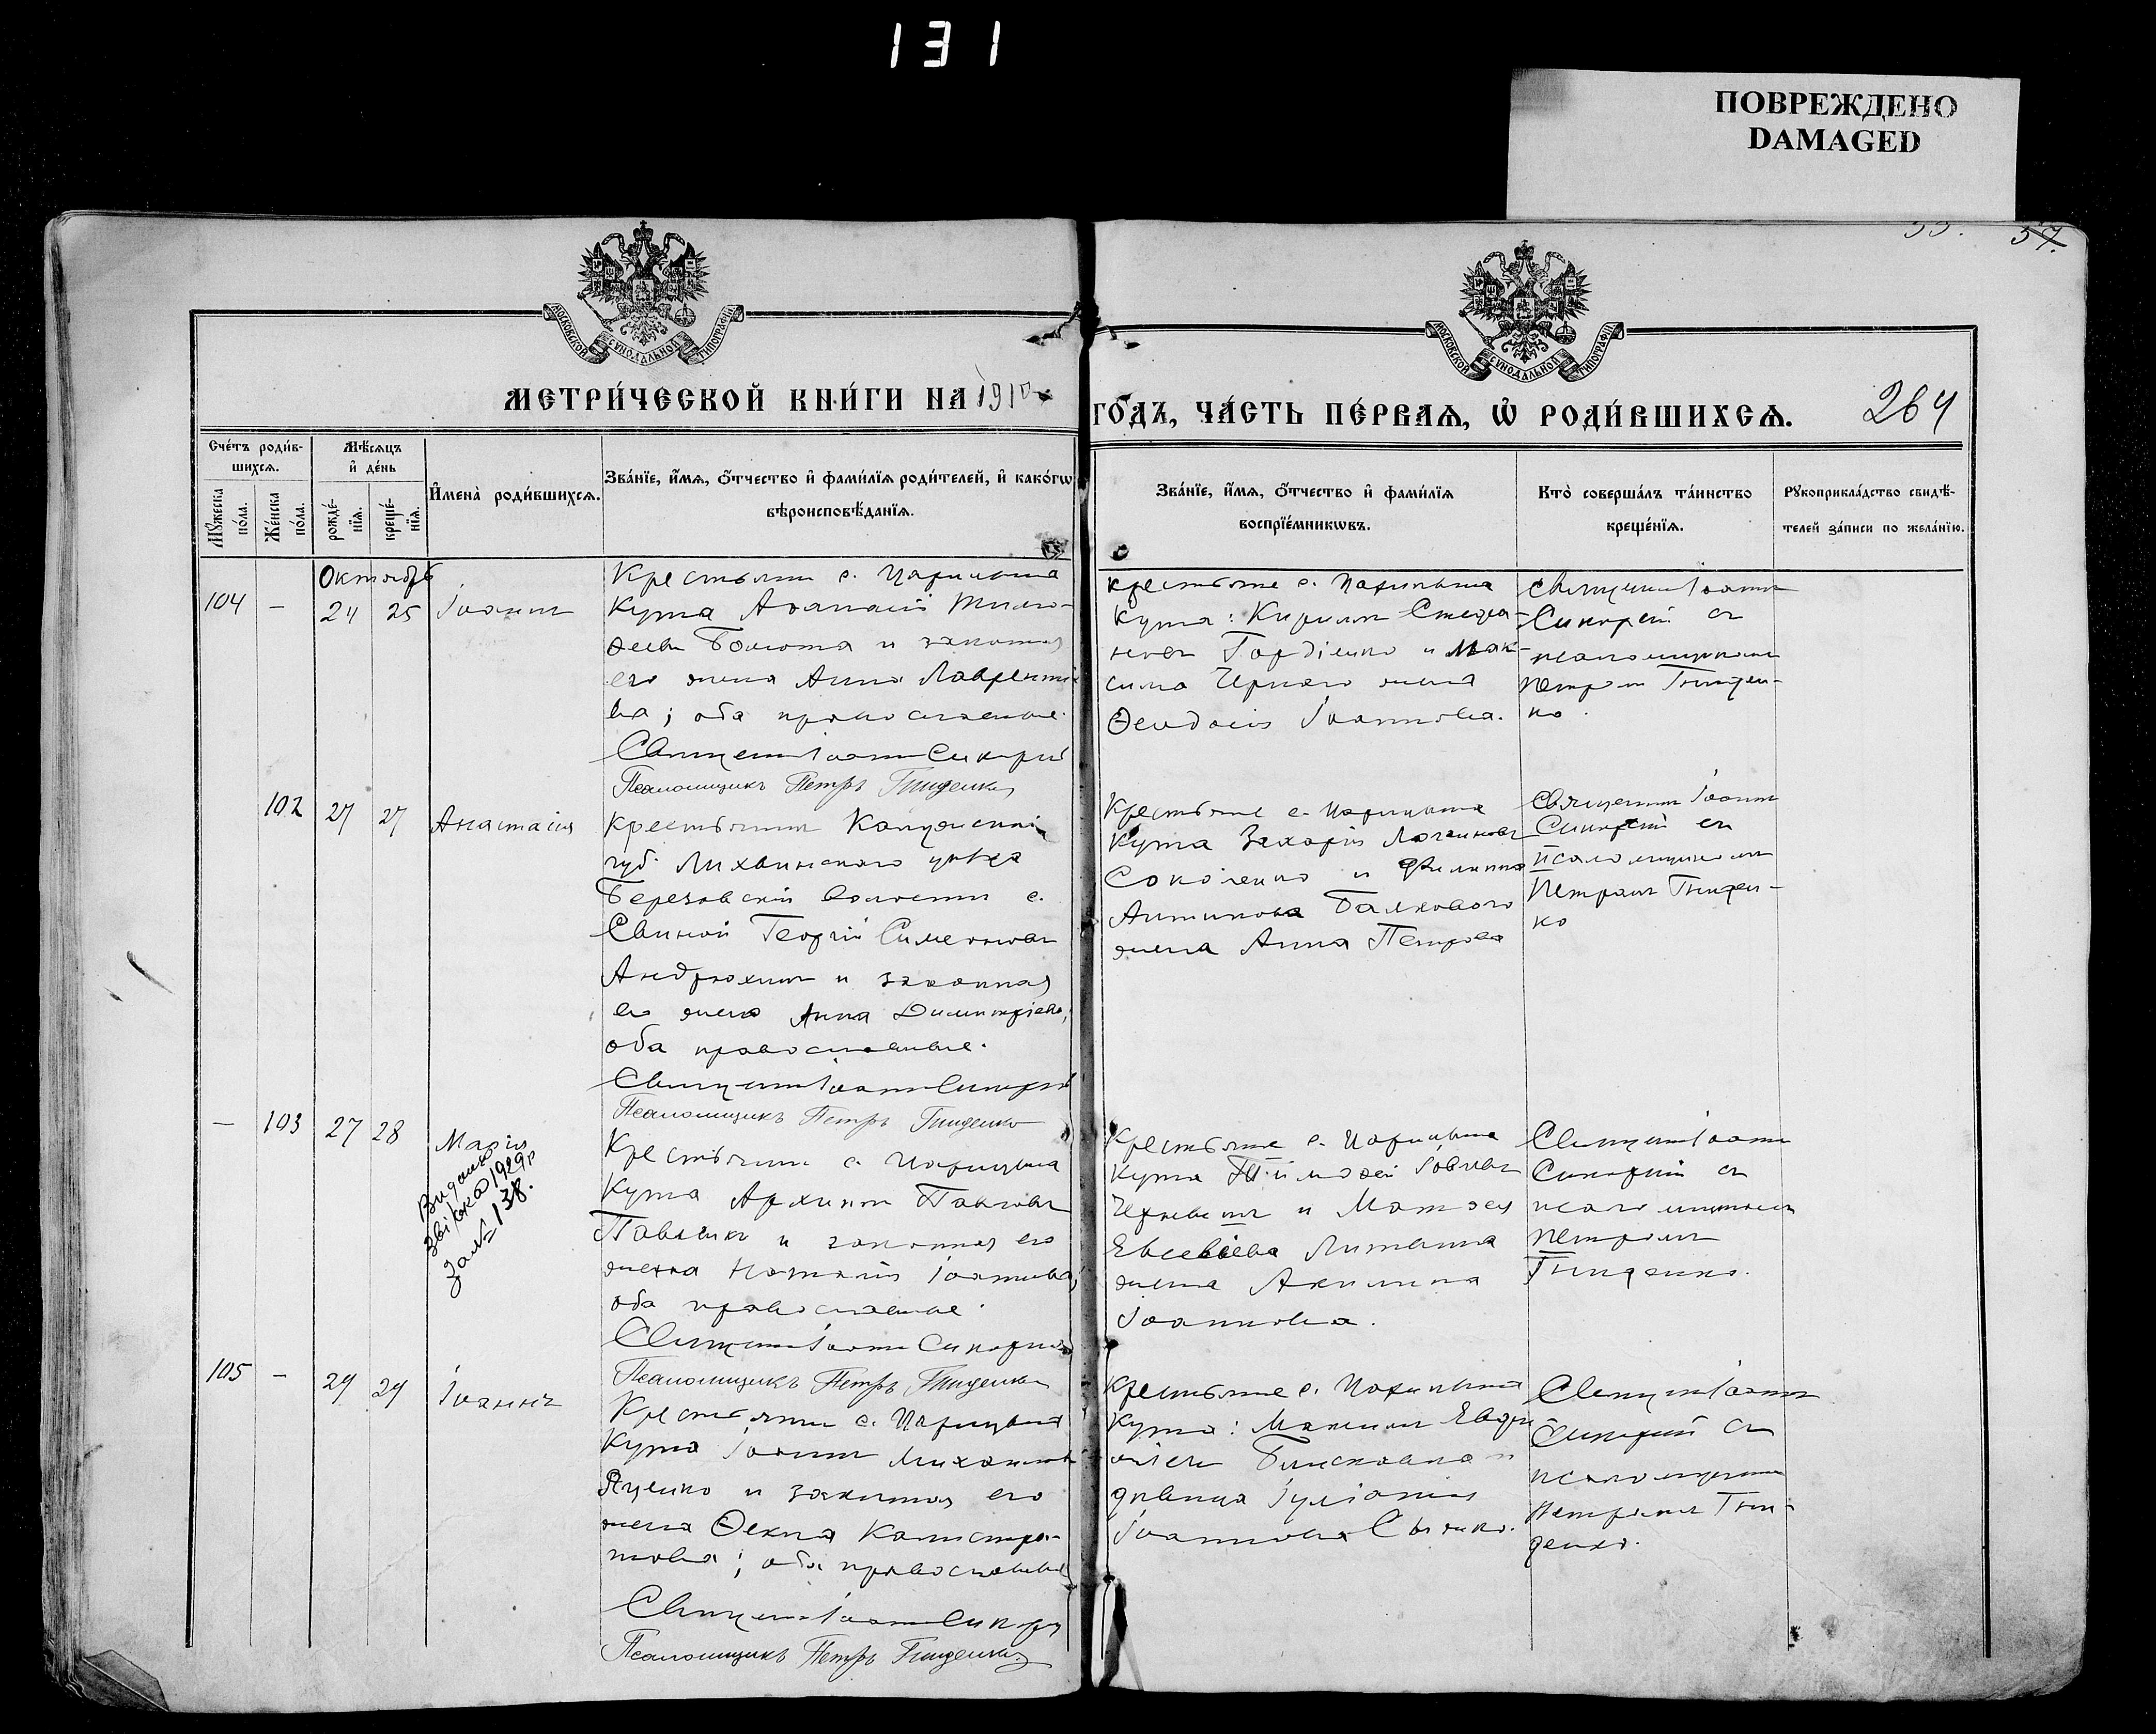 131
ПОВРЕЖДЕНО
DAMAGED
57.
МОСКОВСКОЙ СѴНОДАЛЬНОЙ ТИПОГРАФІИ
МОСКОВСКОЙ СѴНОДАЛЬНОЙ ТИПОГРАФІИ
МЕТРИ́ЧЕСКОЙ КНИ́ГИ НА 1910
ГОДЪ, ЧА́СТЬ ПЕ́РВАѦ, Ѡ҆ РОДИ́ВШИХСѦ. 264
Сче́тъ роди́в-
шихсѧ.
Мꙋ́жеска по́ла.
Же́нска по́ла.
Мѣ́сѧцъ и҆ де́нь
рожде́-
нїѧ.
креще́-
нїѧ.
И҆мена̀ роди́вшихсѧ.
Зва́нїе, и҆́мѧ, ѻ҆́тчество и҆ фами́лїѧ роди́телей, и҆ како́гѡ
вѣроисповѣ́данїѧ.
Зва́нїе, и҆́мѧ, ѻ҆́тчество и҆ фами́лїѧ
воспрїе́мникѡвъ.
Кто̀ соверша́лъ та́инство
креще́нїѧ.
Рꙋкоприкла́дство свидѣ́-
телей за́писи по жела́нїю.
Октябрь
104 – 24 25 Іоаннъ
Крестьянинъ с. Царицына
Кута Аѳанасій Тимо-
ѳеевъ Болюта и законная
его жена Анна Лаврентіе
ва; оба православные.
Священникъ Іоаннъ Сикорскій
Псаломщикъ Петръ Гниденко
Крестьяне с. Царицына
Кута: Кириллъ Стефа-
новъ Гордіенко и Мак-
сима Чернаго жена
Ѳеодосія Іоаннова.
Священникъ Іоаннъ
Сикорскій съ
псаломщикомъ
Петромъ Гниден-
ко.
102 27 27 Анастасія
Крестьянинъ Калужской
губ. Лихвинскаго уѣзда
Березовской волости с.
Свиной Георгій Симеоновъ
Андрюхинъ и законная
его жена Анна Димитріева;
оба православные.
Священникъ Іоаннъ Сикорскій
Псаломщикъ Петръ Гниденко
Крестьяне с. Царицына
Кута Захарій Логиновъ
Соколенко и Филиппа
Антипова Балковаго
жена Анна Петрова
Священникъ Іоаннъ
Сикорскій съ
псаломщикомъ
Петромъ Гниден-
ко
– 103 27 28 Марія
Видано
звірка 1929 р
за № 138.
Крестьянинъ с. Царицына
Кута Архиппъ Павловъ
Павленко и законная его
жена Наталія Іоаннова;
оба православные.
Священникъ Іоаннъ Сикорскій
Псаломщикъ Петръ Гниденко
Крестьяне с. Царицына
Кута Тимоѳей Іовлевъ
и Матѳея
Евсевіева Литвина
жена Акилина
Іоаннова.
Священникъ Іоаннъ
Сикорскій съ
псаломщикомъ
Петромъ
Гниденко.
105 – 29 29 Іоаннъ
Крестьянинъ с. Царицына
Кута Іоаннъ Михаиловъ
Яценко и законная его
жена Ѳекла Калистра-
това; оба православные
Священникъ Іоаннъ Сикорскій
Псаломщикъ Петръ Гниденко
Крестьяне с. Царицына
Кута: Максимъ
и
дѣвица Іуліанія
Іоаннова
Священникъ Іоаннъ
Сикорскій съ
псаломщикомъ
Петромъ Гни-
денко.